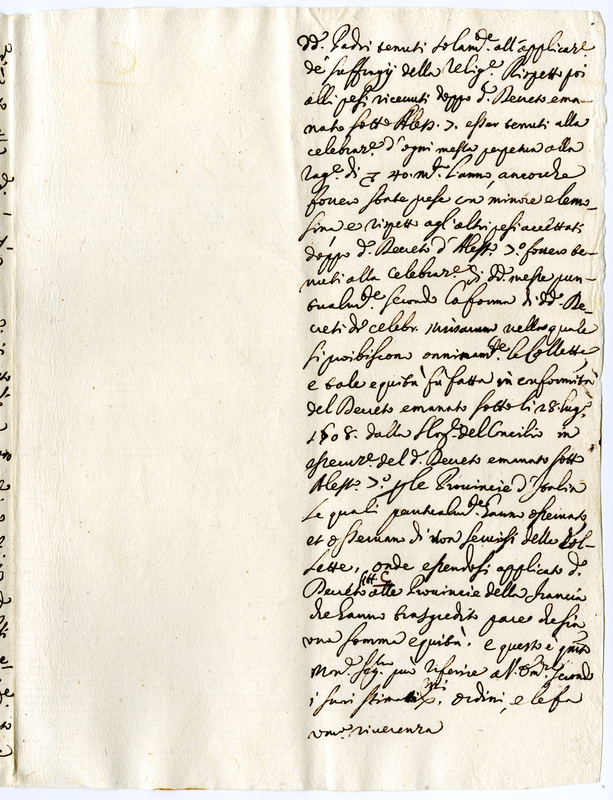 dd. Padri tenuti solam.de all'applicar.e
de' suffragij della Relig.e Rispetto poi
alli pesi ricevuti doppo d. Decreto ema-
nato sotto Aless. 7. esser tenuti alla
celebraz.e d'ogni messa perpetua alla
rag.e di 40. m.d. l'anno, ancorche
fossero state prese con minore elemo-
sina e rispetto agl'altri pesi accettati
doppo d. Decreto d'Aless. 7.o fossero te-
nuti alla celebraz.e di dd. messe pun-
tualm.de secondo la forma di dd. De-
creti de celebr. missarum nelli quale
si proibiscono onninam.de le Collette,
e tale equità fu fatta in conformità
del Decreto emanato sotto li 28. Lug.o
dalla S. Cong. del Concilio in
esecuz.e del d. Decreto emanato sotto
Aless. 7.o le Provincie d'Italia
Le quali puntualm.de hanno osservato
et osservano di non servirsi delle Col-
lette, onde essendosi applicato d.
Decreto alle Provincie della francia
che hanno trasgredito pare che sia
una somma equità. e questo è q.nto
Mons. Seg.rio può riferire all' secondo
i suoi stimatis.mi ordini, e le fa
um.a riverenza